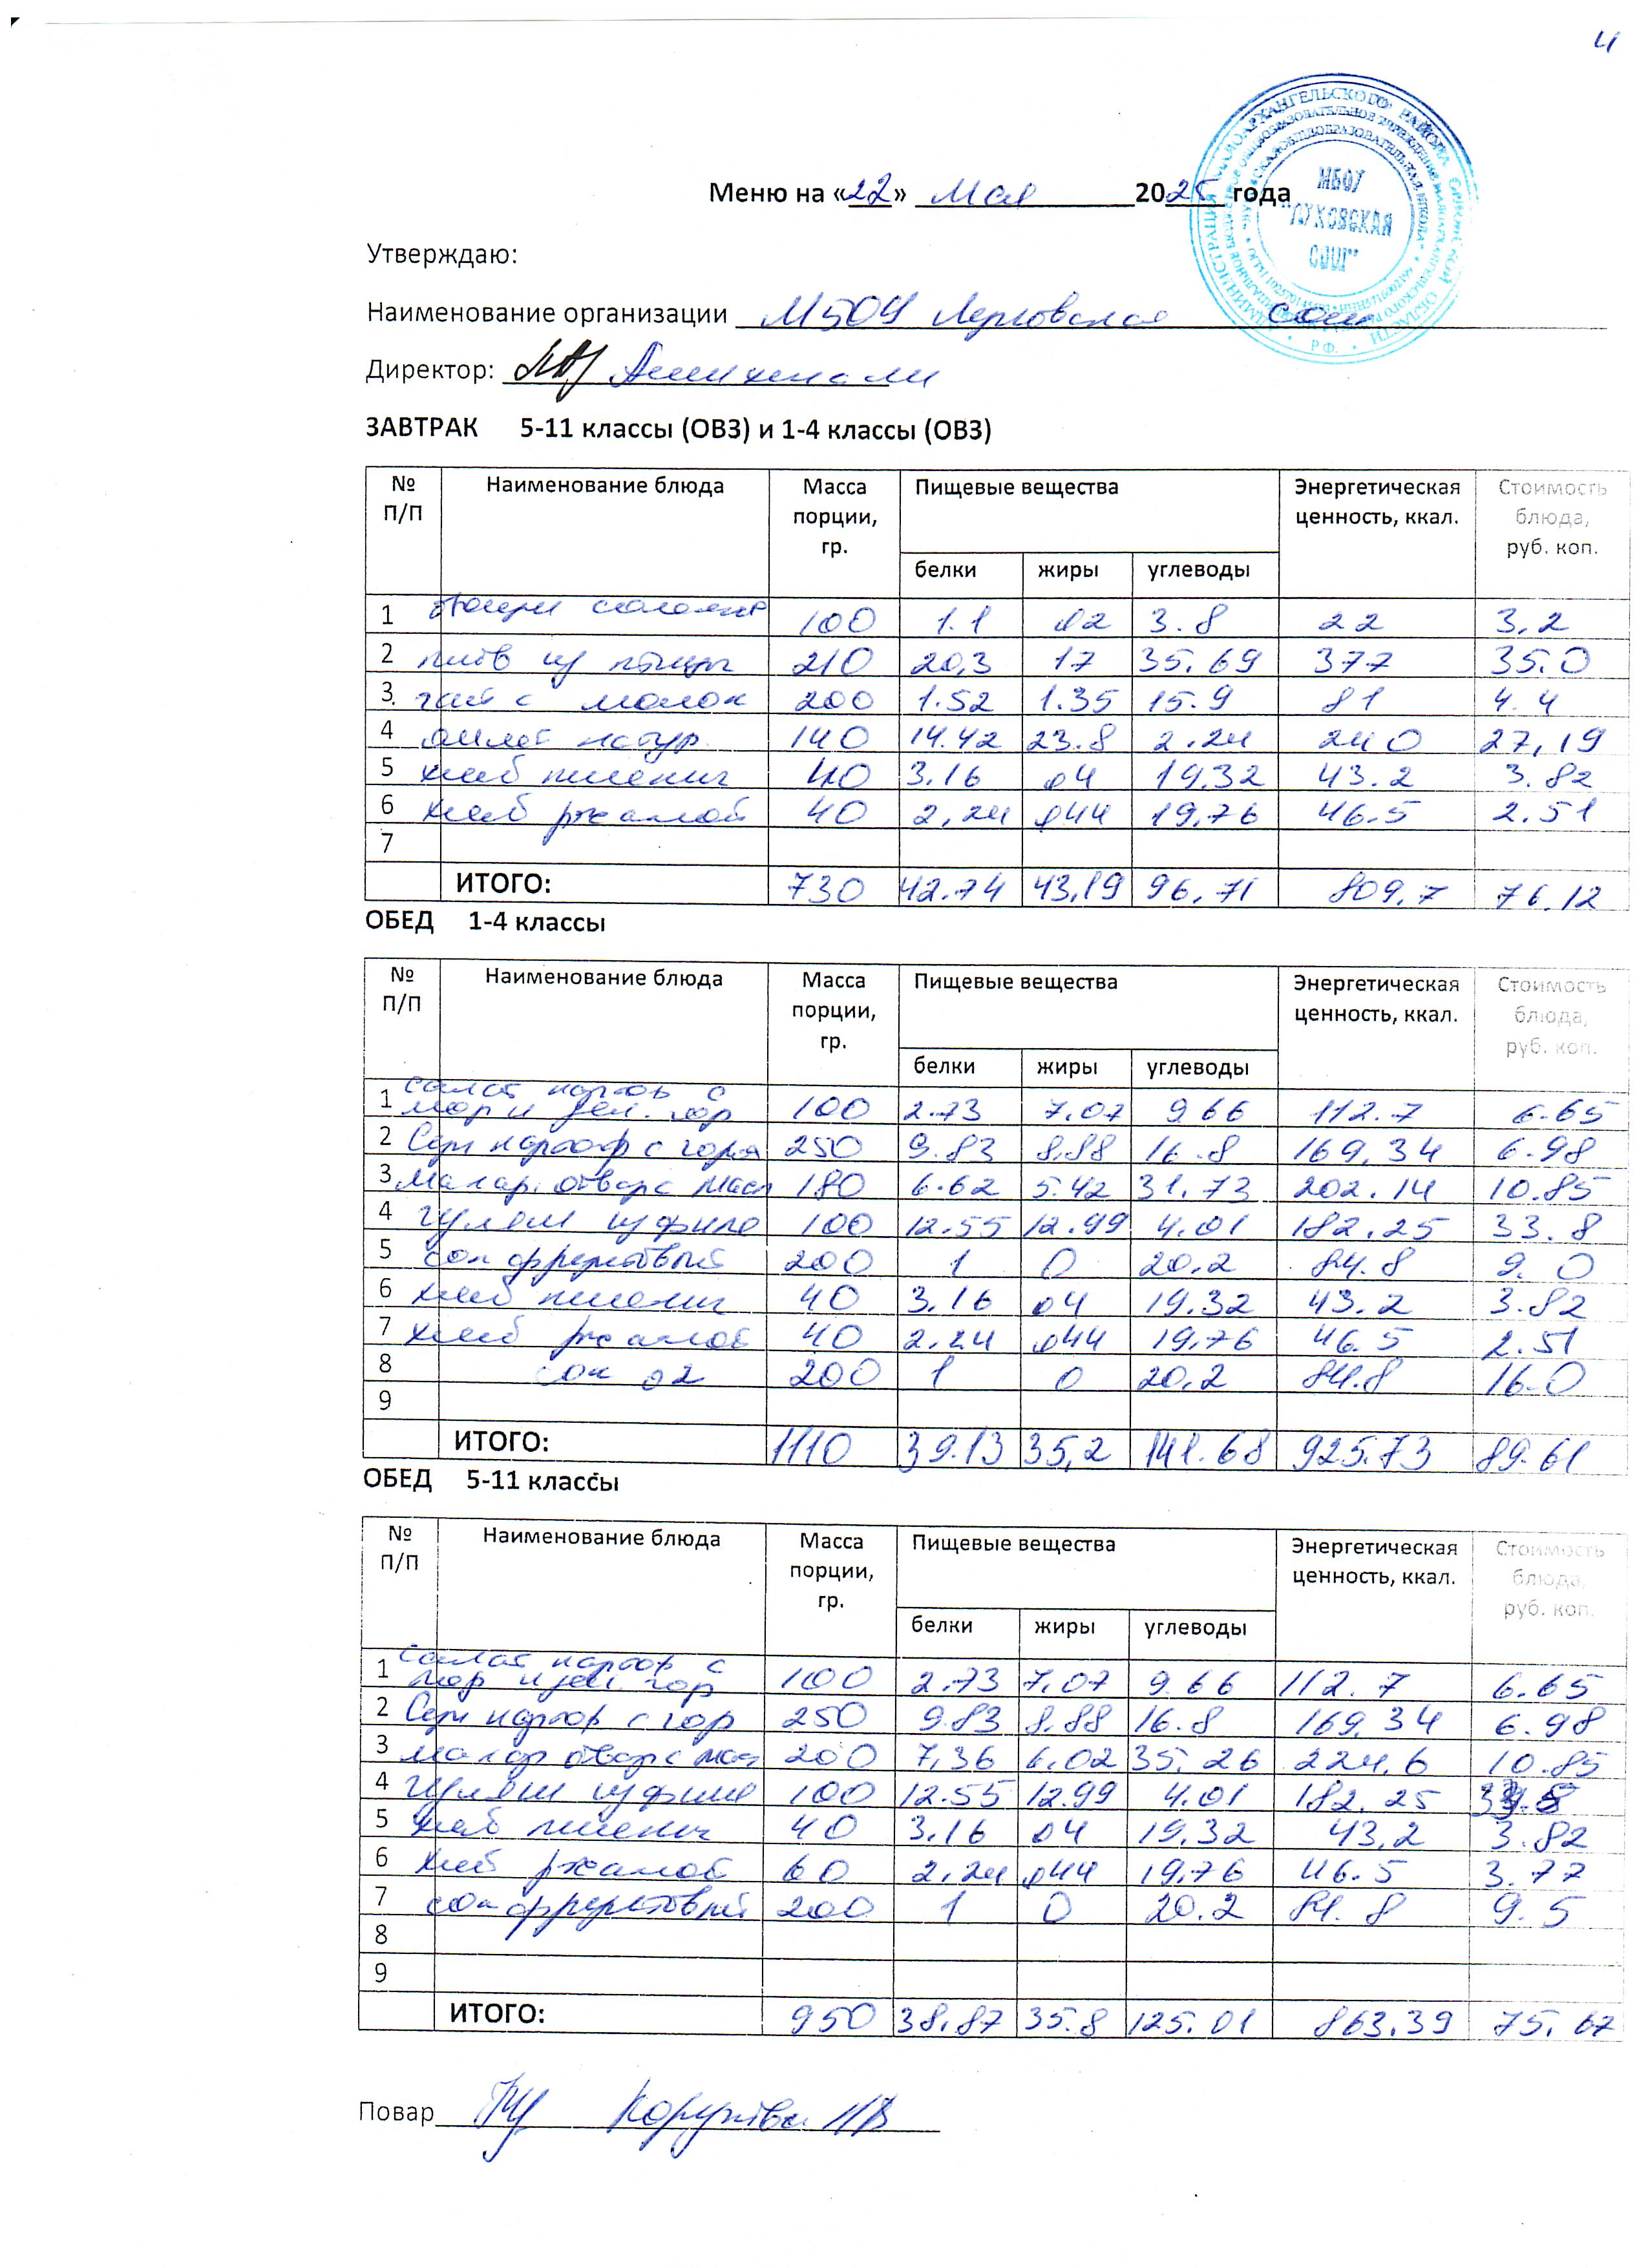 4
Меню на «22» мая 2025 года
Утверждаю:
Наименование организации МБОУ Луковская сош
МБОУ
"ЛУКОВСКАЯ
СОШ"
Директор:
ЗАВТРАК 5-11 классы (ОВЗ) и 1-4 классы (ОВЗ)
№ П/П Наименование блюда Масса порции, гр. Пищевые вещества Энергетическая ценность, ккал. Стоимость блюда, руб. коп.
белки жиры углеводы
1 овощи солоные 100 1.1 02 3.8 22 3,2
2 плов из птицы 210 20,3 17 35.69 377 35.0
3. чай с молок 200 1.52 1.35 15.9 81 4.4
4 омлет натур. 140 14.42 23.8 2.24 240 27,19
5 хлеб пшенич 40 3.16 04 19,32 43.2 3.82
6 хлеб ржаной 40 2,24 044 19,76 46.5 2.51
7
ИТОГО: 730 42.74 43,19 96.71 809.7 76.12
ОБЕД 1-4 классы
№ П/П Наименование блюда Масса порции, гр. Пищевые вещества Энергетическая ценность, ккал. Стоимость блюда, руб. коп.
белки жиры углеводы
1 Салат картоф с
мор и зел. гор 100 2.73 7,07 9 66 112.7 6.65
2 Суп картоф с горох 250 9.83 8.88 16.8 169,34 6.98
3 Макар. отвар с масл 180 6.62 5.42 31.73 202.14 10.85
4 гуляш из филе 100 12.55 12.99 4.01 182.25 33.8
5 сок фруктовый 200 1 0 20,2 84.8 9.0
6 хлеб пшенич 40 3.16 04 19.32 43.2 3.82
7 хлеб ржаной 40 2,24 044 19,76 46.5 2.51
8 сок 02 200 1 0 20,2 84.8 16.0
9
ИТОГО: 1110 39.13 35,2 141.68 925.73 89.61
ОБЕД 5-11 классы
№ П/П Наименование блюда Масса порции, гр. Пищевые вещества Энергетическая ценность, ккал. Стоимость блюда, руб. коп.
белки жиры углеводы
1 Салат картоф с
мор и зел. гор 100 2.73 7,07 9 66 112.7 6.65
2 Суп картоф с гор 250 9.83 8.88 16.8 169,34 6.98
3 макар отвар с мас 200 7,36 6,02 35,26 224,6 10.85
4 гуляш из филе 100 12.55 12.99 4.01 182.25
5 хлеб пшенич 40 3,16 04 19,32 43,2 3.82
6 хлеб ржаной 60 2,24 044 19,76 46.5 3.77
7 сок фруктовый 200 1 0 20.2 84.8 9.5
8
9
ИТОГО: 950 38.87 35.8 125.01 863.39 75.67
Повар